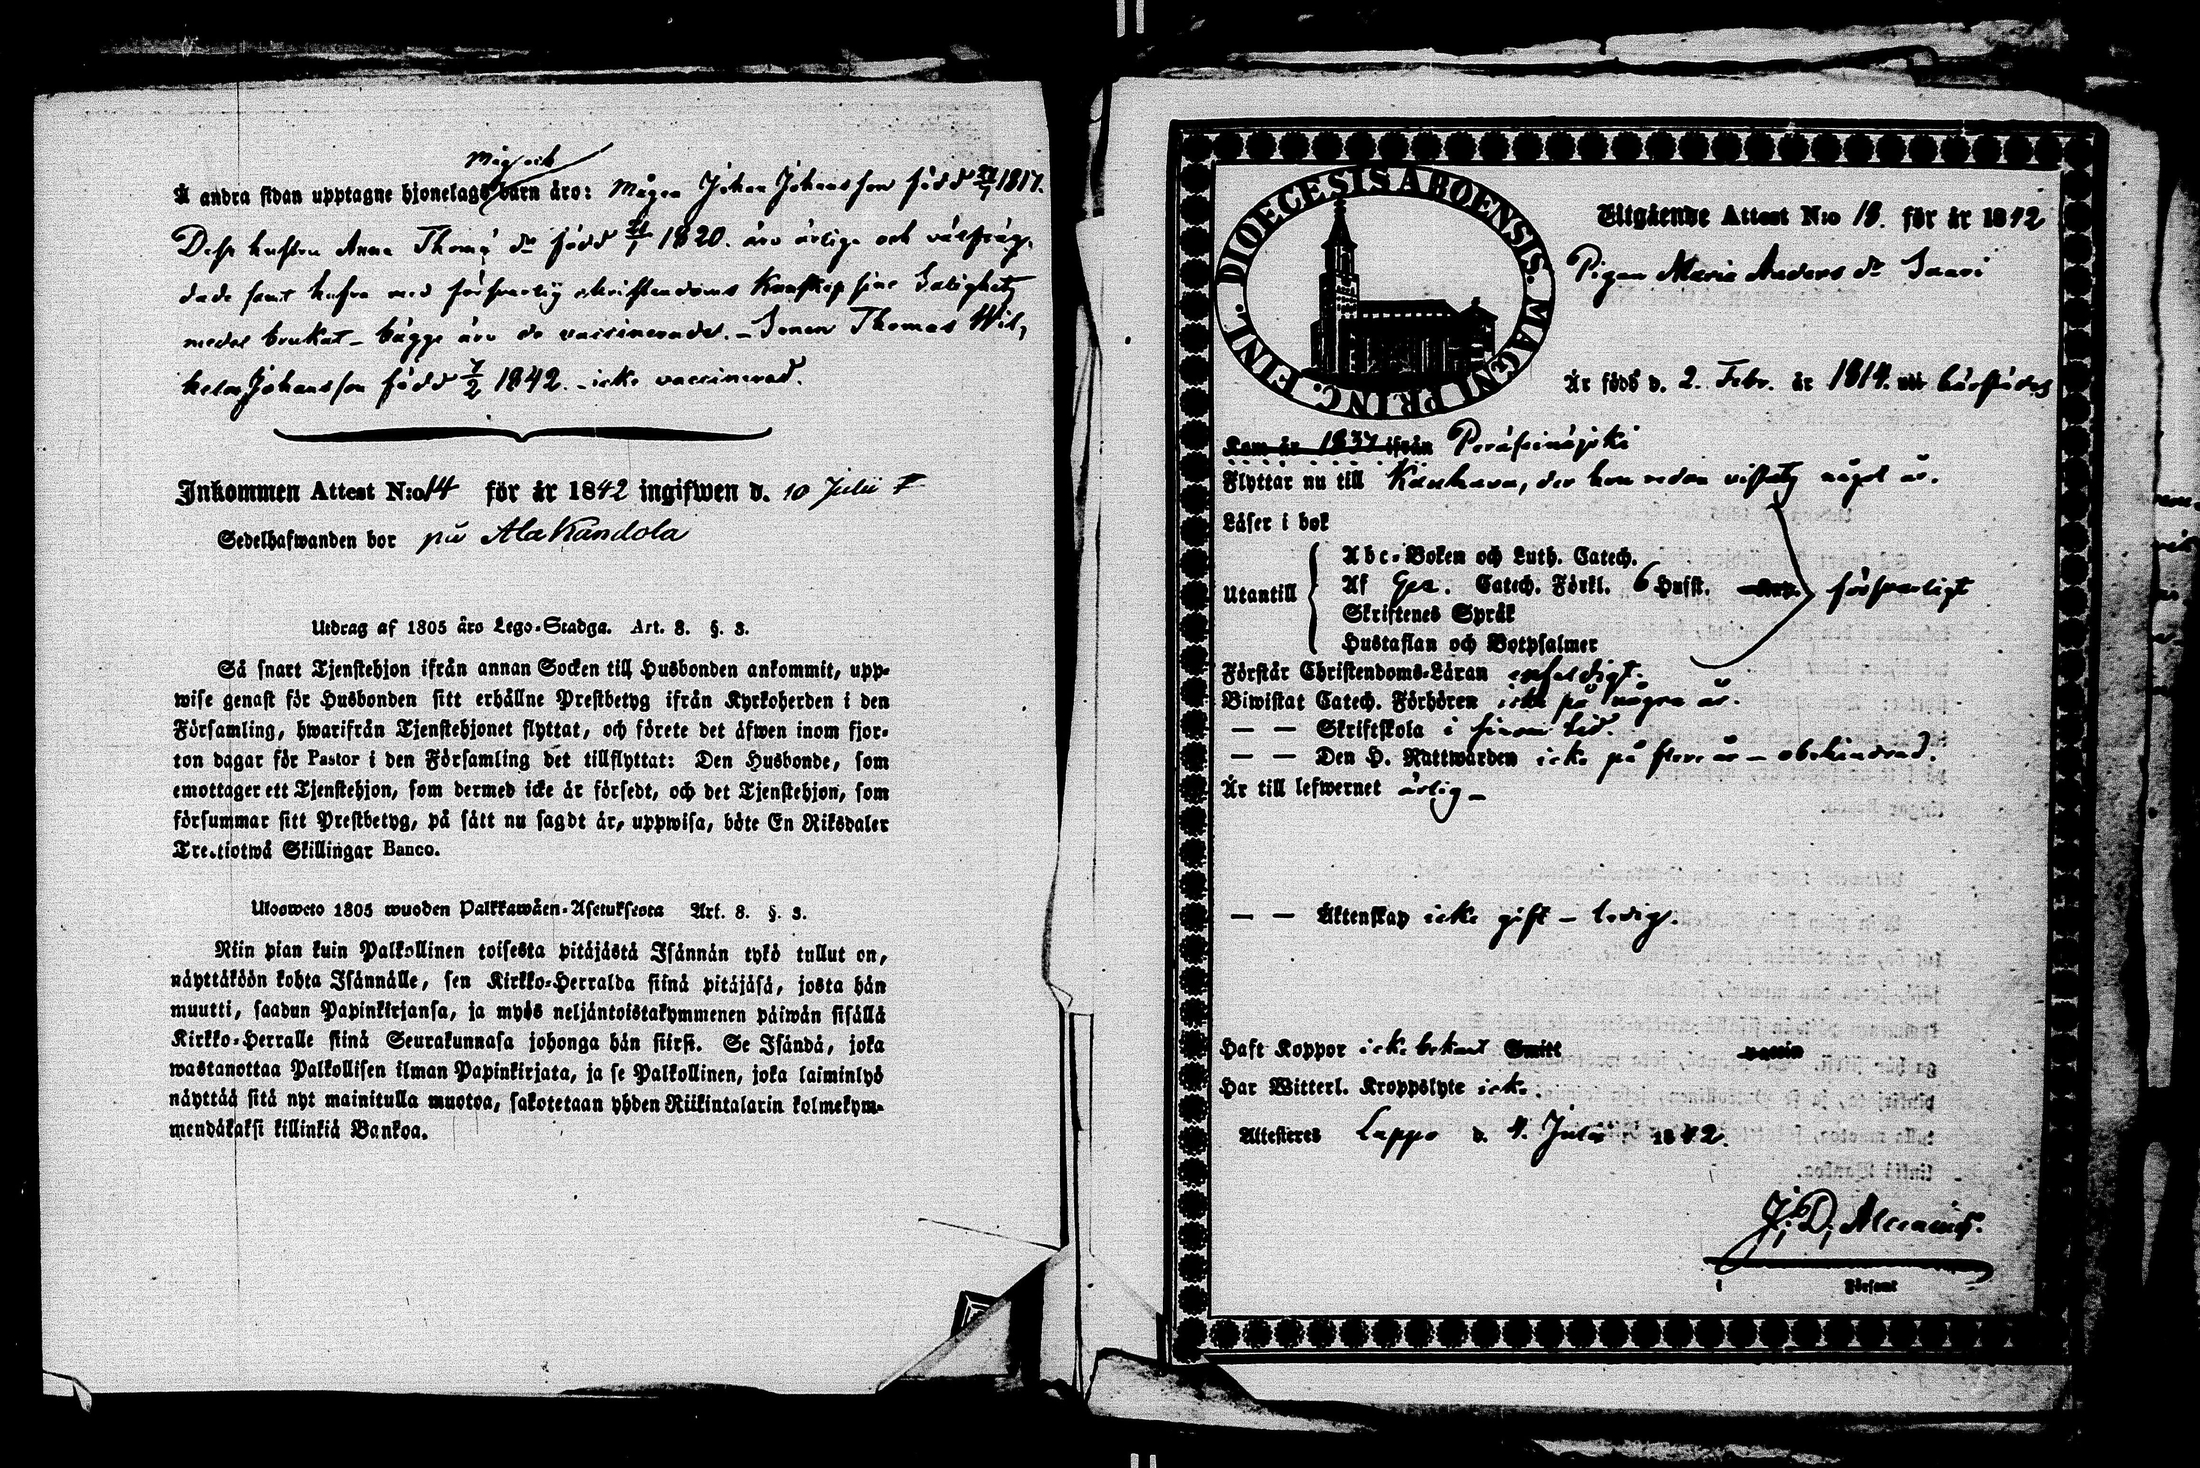 Måg och
Å andra sidan upptagne hjonelags barn äro: Mågen Johan Johansson född 1817.
Dess hustru Anna Thomæ dr född 21/1 1820. äro ärlige och välfräg-
dade samt hafva med försvarlig christendoms kunskap sine Salighets
medel brukat – bägge äro de vaccinerade. – Sonen Thomas Wil-
helm Johansson född 7/2 1842. – icke vaccinerad.
Inkommen Attest N:o 14 för år 1842 ingifwen d. 10 Julii
Sedelhafwanden bor på Ala Kandola
Utdrag af 1805 års Lego-Stadga. Art. 8. §. 3.
Så snart Tjenstehjon ifrån annan Socken till Husbonden ankommit, upp-
wise genast för Husbonden sitt erhållne Prestbetyg ifrån Kyrkoherden i den
Församling, hwarifrån Tjenstehjonet flyttat, och förete det äfwen inom fjor-
ton dagar för Pastor i den Församling det tillflyttat: Den Husbonde, som
emottager ett Tjenstehjon, som dermed icke är försedt, och det Tjenstehjon, som
försummar sitt Prestbetyg, på sätt nu sagdt är, uppwisa, böte En Riksdaler
Trettiotwå Skillingar Banco.
Ulosweto 1805 wuoden Palkkawäen-Asetuksesta Art. 8. §. 3.
Niin pian kuin Palkollinen toisesta pitäjästä Isännän tykö tullut on,
näyttäköön kohta Isännälle, sen Kirkko-Herralda siinä pitäjäsä, josta hän
muutti, saadun Papinkirjansa, ja myös neljäntoistakymmenen päiwän sisällä
Kirkko-Herralle siinä Seurakunnasa johonga hän siirsi. Se Isändä, joka
wastanottaa Palkollisen ilman Papinkirjata, ja se Palkollinen, joka laiminlyö
näyttää sitä nyt mainitulla muotoa, sakotetaan yhden Riikintalarin kolmekym-
mendäkaksi killinkiä Bankoa.
DIOECESIS ABOENSIS. MAGNI PRINC. FINL.
Utgående Attest N:o 18. för år 1842
Pigan Maria Anders dr Saari
Är född d. 2. Febr. år 1814. uti härstädes
Kom år 1837 ifrån Peräseinäjoki
Flyttar nu till Kauhava, der hon redan vistats något år.
Läser i bok
Abc-Boken och Luth. Catech.
Utantill Af Gez. Catech. Förkl. 6 Hufst. försvarligt
Skriftenes Språk
Hustaflan och Botpsalmer
Förstår Christendoms-Läran enfaldigt.
Biwistat Catech. Förhören icke på några år.
— — Skriftskola i sinom tid.
— — Den H. Nattwarden icke på flere år – obehindrad.
Är till lefwernet ärlig –
— — Äktenskap icke gift – ledig.
Haft Koppor icke bekant Smitt vaccin
Har Witterl. Kroppslyte icke.
Attesteres Lappo d. 4. Julii 1842.
J. D. Alcenius.
Församl